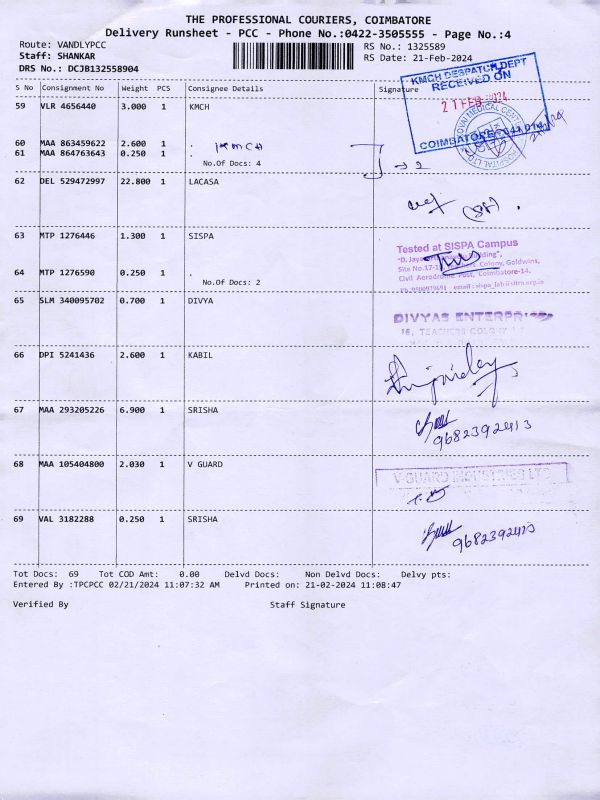 THE PROFESSIONAL COURIERS, COIMBATORE
Delivery Runsheet - PCC - Phone No.:0422-3505555 - Page No.:4
Route: VANDLYPCC RS No.: 1325589
Staff: SHANKAR RS Date: 21-Feb-2024
DRS No.: DCJB132558904
S No Consignment No Weight PCS Consignee Details Signature
KMCH DESPATCH DEPT
RECEIVED ON
21 FEB 2024
COIMBATORE - 641 014
59 VLR 4656440 3.000 1 KMCH
60 MAA 863459622 2.600 1 .
KMCH
61 MAA 864763643 0.250 1 .
No.Of Docs: 4
62 DEL 529472997 22.800 1 LACASA
63 MTP 1276446 1.300 1 SISPA
Tested at SISPA Campus
Site No.17- Colony, Goldwins,
Civil Aerodrome Post, Coimbatore-14.
64 MTP 1276590 0.250 1 .
No.Of Docs: 2
65 SLM 340095702 0.700 1 DIVYA
DIVYAS ENTERPRISES
16, TEACHERS COLONY
66 DPI 5241436 2.600 1 KABIL
67 MAA 293205226 6.900 1 SRISHA
9682392413
68 MAA 105404800 2.030 1 V GUARD
V-GUARD INDUSTRIES LTD
69 VAL 3182288 0.250 1 SRISHA
9682392413
Tot Docs: 69 Tot COD Amt: 0.00 Delvd Docs: Non Delvd Docs: Delvy pts:
Entered By :TPCPCC 02/21/2024 11:07:32 AM Printed on: 21-02-2024 11:08:47
Verified By Staff Signature